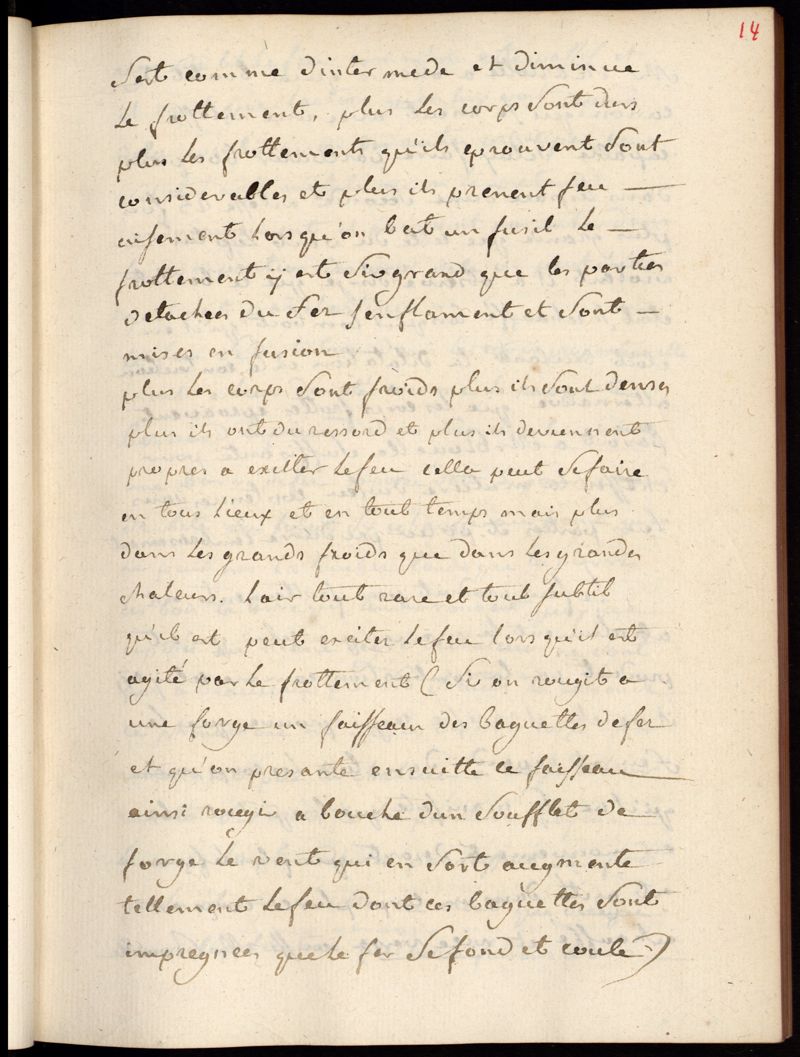 14
Sert comme d'intermede et diminue
Le frottement, plus Les corps Sont durs
plus Les frottements qu'ils eprouvent Sont
considerables et plus ils prenent feu —
aisement Lorsqu'on bat un fusil Le —
frottement y est Si grand que les parties
detachees du Fer s'enflament et Sont —
mises en fusion
plus Les corps Sont froids plus ils Sont denses
plus ils ont du ressord et plus ils deviennent
propres a exciter Le feu cella peut Se faire
en tous Lieux et en tout temps mais plus
dans Les grands froids que dans Les grandes
chaleurs. L'air tout rare et tout subtil
qu'il est peut exciter Le feu lorsqu'il est
agité par Le frottement (Si on rougit a
une forge un faisseau des baguettes de fer
et qu'on presante ensuitte ce faisseau
ainsi rougi a bouche dun Soufflet de
forge Le vent qui en Sort augmente
tellement Le feu dont ces baguettes Sont
impregnees que Le fer Se fond et coule.)